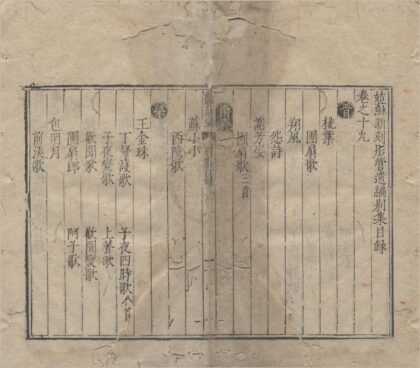 姑蘇新刻彤管遺編别集目錄
卷之十九
晉
桃葉
團扇歌
翔風
怨詩
謝芳姿
團扇歌二首
南齊
蘇小小
西陵歌
梁
王金珠
丁督護歌 子夜四時歌八首
子夜變歌 上聲歌
歡聞歌 歡聞變歌
團扇郎 阿子歌
包明月
前溪歌